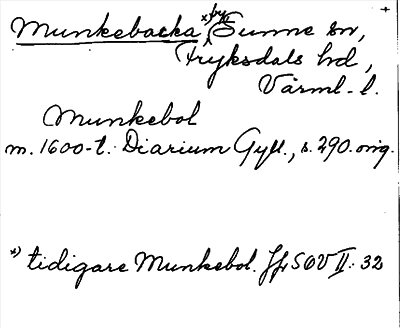 Munkebacka *) by Sunne sn,
Fryksdals hd,
Värml. l.
Munkebol
m. 1600-t. Diarium Gyll., s. 290. orig.
*) tidigare Munkebol. Jfr SOV II: 32